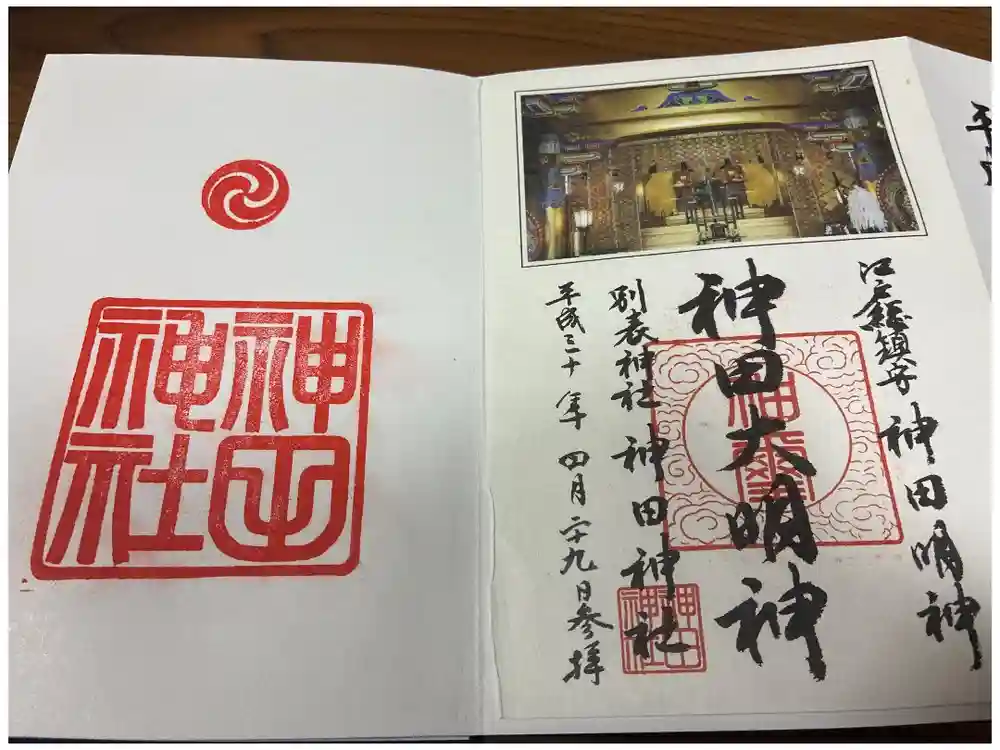 江戸総鎮守 神田明神
神田大明神
別表神社 神田神社
平成三十年四月二十九日参拝
神田
神社
神田
神社